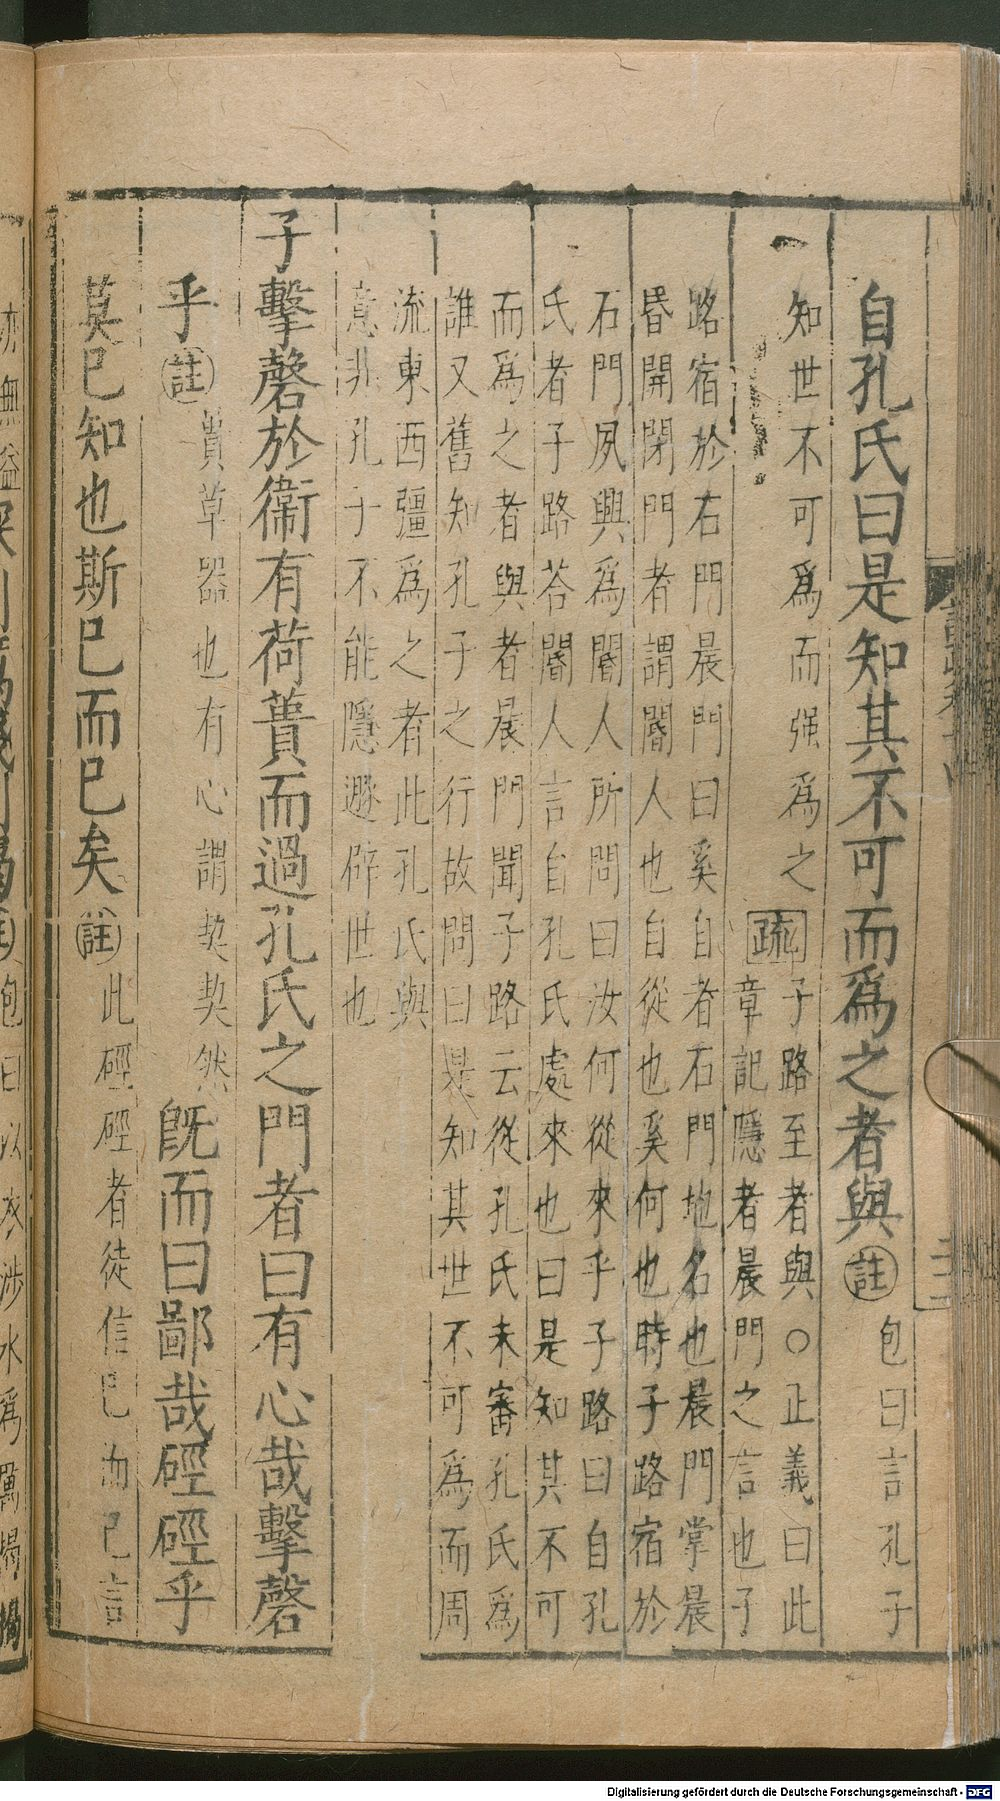 自孔氏曰是知其不可而爲之者與註包曰言孔子
知世不可爲而强爲之疏子路至者與○正義曰此
章記隱者晨門之言也子
路宿於石門晨門曰奚自者石門地名也晨門掌晨
昏開閉門者謂閽人也自從也奚何也時子路宿於
石門夙興爲閽人所問曰汝何從來乎子路曰自孔
氏者子路荅閽人言自孔氏處來也曰是知其不可
而爲之者與者晨門聞子路云從孔氏未審孔氏爲
誰又舊知孔子之行故問曰是知其世不可爲而周
流東西彊爲之者此孔氏與
意非孔子不能隱遯辟世也
子擊磬於衞有荷蕢而過孔氏之門者曰有心哉擊磬
乎註蕢草器也有心謂契契然旣而曰鄙哉硜硜乎
莫己知也斯已而已矣註此硜硜者徒信己而已言
Digitalisierung gefördert durch die Deutsche Forschungsgemeinschaft - DFG